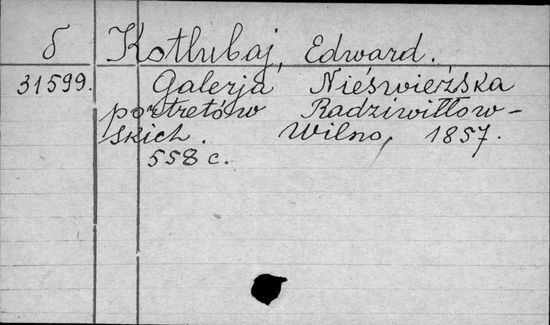 б Kotłubaj, Edward.
31599. Galerja Nieświeżska
portretów Radziwiłłow-
skich. Wilno, 1857.
558 c.